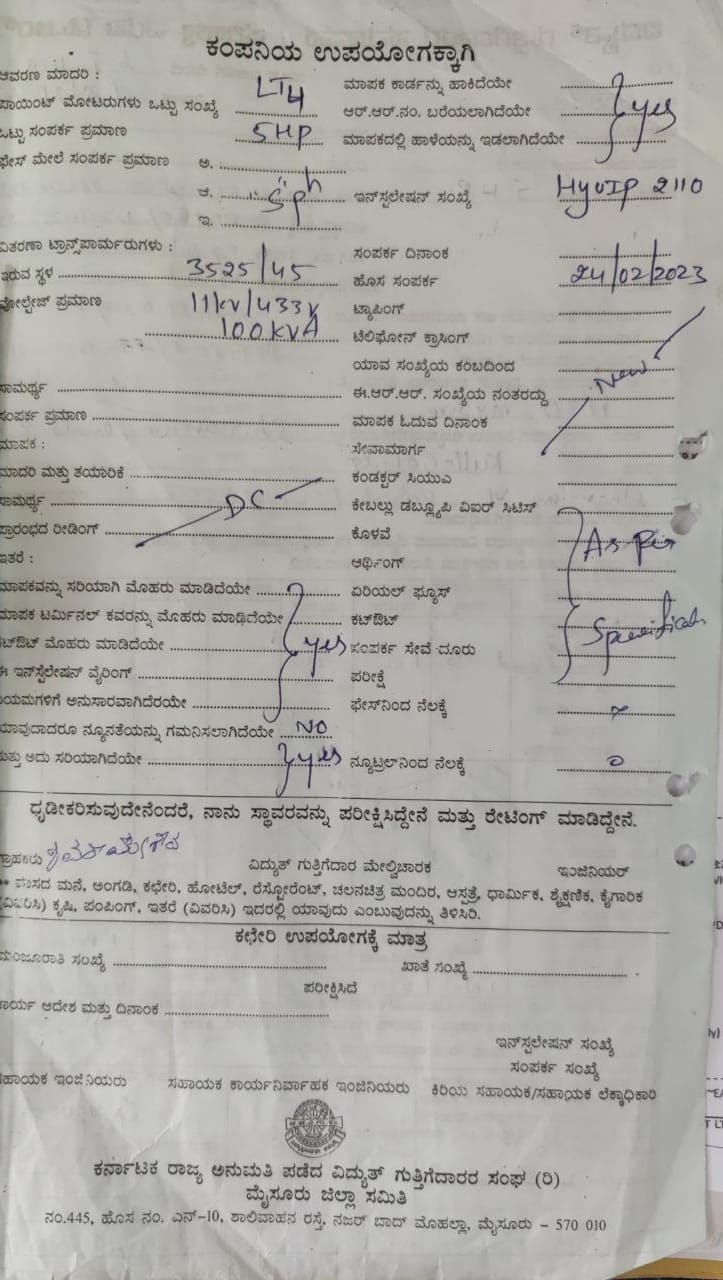 ಕಂಪನಿಯ ಉಪಯೋಗಕ್ಕಾಗಿ
ಆವರಣ ಮಾದರಿ :
ಮಾಪಕ ಕಾರ್ಡನ್ನು ಹಾಕಿದೆಯೇ
ಪಾಯಿಂಟ್ ಮೋಟರುಗಳು ಒಟ್ಟು ಸಂಖ್ಯೆ LT4
ಆರ್.ಆರ್.ನಂ. ಬರೆಯಲಾಗಿದೆಯೇ yes
ಒಟ್ಟು ಸಂಪರ್ಕ ಪ್ರಮಾಣ 5HP
ಮಾಪಕದಲ್ಲಿ ಹಾಳೆಯನ್ನು ಇಡಲಾಗಿದೆಯೇ
ಫೇಸ್ ಮೇಲೆ ಸಂಪರ್ಕ ಪ್ರಮಾಣ ಅ.
ಆ.
ಇನ್‌ಸ್ಟಲೇಷನ್ ಸಂಖ್ಯೆ HyVIP 2110
ಇ.
ವಿತರಣಾ ಟ್ರಾನ್ಸ್‌ಪಾರ್ಮರುಗಳು :
ಸಂಪರ್ಕ ದಿನಾಂಕ
ಇರುವ ಸ್ಥಳ 3525/45
ಹೊಸ ಸಂಪರ್ಕ 24/02/2023
ವೋಲ್ಟೇಜ್ ಪ್ರಮಾಣ 11kv/433v
ಟ್ಯಾಪಿಂಗ್
100kVA
ಟೆಲಿಫೋನ್ ಕ್ರಾಸಿಂಗ್
ಯಾವ ಸಂಖ್ಯೆಯ ಕಂಬದಿಂದ
ಸಾಮರ್ಥ್ಯ
ಈ.ಆರ್.ಆರ್. ಸಂಖ್ಯೆಯ ನಂತರದ್ದು New
ಸಂಪರ್ಕ ಪ್ರಮಾಣ
ಮಾಪಕ ಓದುವ ದಿನಾಂಕ
ಮಾಪಕ :
ಸೇವಾಮಾರ್ಗ
ಮಾದರಿ ಮತ್ತು ತಯಾರಿಕೆ
ಕಂಡಕ್ಟರ್ ಸಿಯುಎ
ಸಾಮರ್ಥ್ಯ DC
ಕೇಬಲ್ಲು ಡಬ್ಲ್ಯೂಪಿ ವಿಐರ್ ಸಿಟಿಸ್
ಪ್ರಾರಂಭದ ರೀಡಿಂಗ್
ಕೊಳವೆ As per
ಇತರೆ :
ಆರ್ಥಿಂಗ್
ಮಾಪಕವನ್ನು ಸರಿಯಾಗಿ ಮೊಹರು ಮಾಡಿದೆಯೇ
ಏರಿಯಲ್ ಫ್ಯೂಸ್
ಮಾಪಕ ಟರ್ಮಿನಲ್ ಕವರನ್ನು ಮೊಹರು ಮಾಡಿದೆಯೇ
ಕಟ್‌ಔಟ್
ಕಟ್‌ಔಟ್ ಮೊಹರು ಮಾಡಿದೆಯೇ yes
ಸಂಪರ್ಕ ಸೇವೆ ದೂರು
ಈ ಇನ್‌ಸ್ಟಲೇಷನ್ ವೈರಿಂಗ್
ಪರೀಕ್ಷೆ
ನಿಯಮಗಳಿಗೆ ಅನುಸಾರವಾಗಿದೆರಯೇ
ಫೇಸ್‌ನಿಂದ ನೆಲಕ್ಕೆ
ಯಾವುದಾದರೂ ನ್ಯೂನತೆಯನ್ನು ಗಮನಿಸಲಾಗಿದೆಯೇ NO
ಮತ್ತು ಅದು ಸರಿಯಾಗಿದೆಯೇ yes
ನ್ಯೂಟ್ರಲ್‌ನಿಂದ ನೆಲಕ್ಕೆ 0
ಧೃಡೀಕರಿಸುವುದೇನೆಂದರೆ, ನಾನು ಸ್ಥಾವರವನ್ನು ಪರೀಕ್ಷಿಸಿದ್ದೇನೆ ಮತ್ತು ರೇಟಿಂಗ್ ಮಾಡಿದ್ದೇನೆ.
ಗ್ರಾಹಕರು
ವಿದ್ಯುತ್ ಗುತ್ತಿಗೆದಾರ ಮೇಲ್ವಿಚಾರಕ
ಇಂಜಿನಿಯರ್
** ವಾಸದ ಮನೆ, ಅಂಗಡಿ, ಕಛೇರಿ, ಹೋಟೆಲ್, ರೆಸ್ಟೋರೆಂಟ್, ಚಲನಚಿತ್ರ ಮಂದಿರ, ಆಸ್ಪತ್ರೆ, ಧಾರ್ಮಿಕ, ಶೈಕ್ಷಣಿಕ, ಕೈಗಾರಿಕ
(ವಿವರಿಸಿ) ಕೃಷಿ, ಪಂಪಿಂಗ್, ಇತರೆ (ವಿವರಿಸಿ) ಇದರಲ್ಲಿ ಯಾವುದು ಎಂಬುವುದನ್ನು ತಿಳಿಸಿರಿ.
ಕಛೇರಿ ಉಪಯೋಗಕ್ಕೆ ಮಾತ್ರ
ಮಂಜೂರಾತಿ ಸಂಖ್ಯೆ
ಖಾತೆ ಸಂಖ್ಯೆ
ಪರೀಕ್ಷಿಸಿದೆ
ಕಾರ್ಯ ಆದೇಶ ಮತ್ತು ದಿನಾಂಕ
ಇನ್‌ಸ್ಟಲೇಷನ್ ಸಂಖ್ಯೆ
ಸಂಪರ್ಕ ಸಂಖ್ಯೆ
ಸಹಾಯಕ ಇಂಜಿನಿಯರು
ಸಹಾಯಕ ಕಾರ್ಯನಿರ್ವಾಹಕ ಇಂಜಿನಿಯರು
ಕಿರಿಯ ಸಹಾಯಕ/ಸಹಾಯಕ ಲೆಕ್ಕಾಧಿಕಾರಿ
ಕರ್ನಾಟಕ ರಾಜ್ಯ ಅನುಮತಿ ಪಡೆದ ವಿದ್ಯುತ್ ಗುತ್ತಿಗೆದಾರರ ಸಂಘ (ರಿ)
ಮೈಸೂರು ಜಿಲ್ಲಾ ಸಮಿತಿ
ನಂ.445, ಹೊಸ ನಂ. ಎನ್-10, ಶಾಲಿವಾಹನ ರಸ್ತೆ, ನಜರ್ ಬಾದ್ ಮೊಹಲ್ಲಾ, ಮೈಸೂರು - 570 010